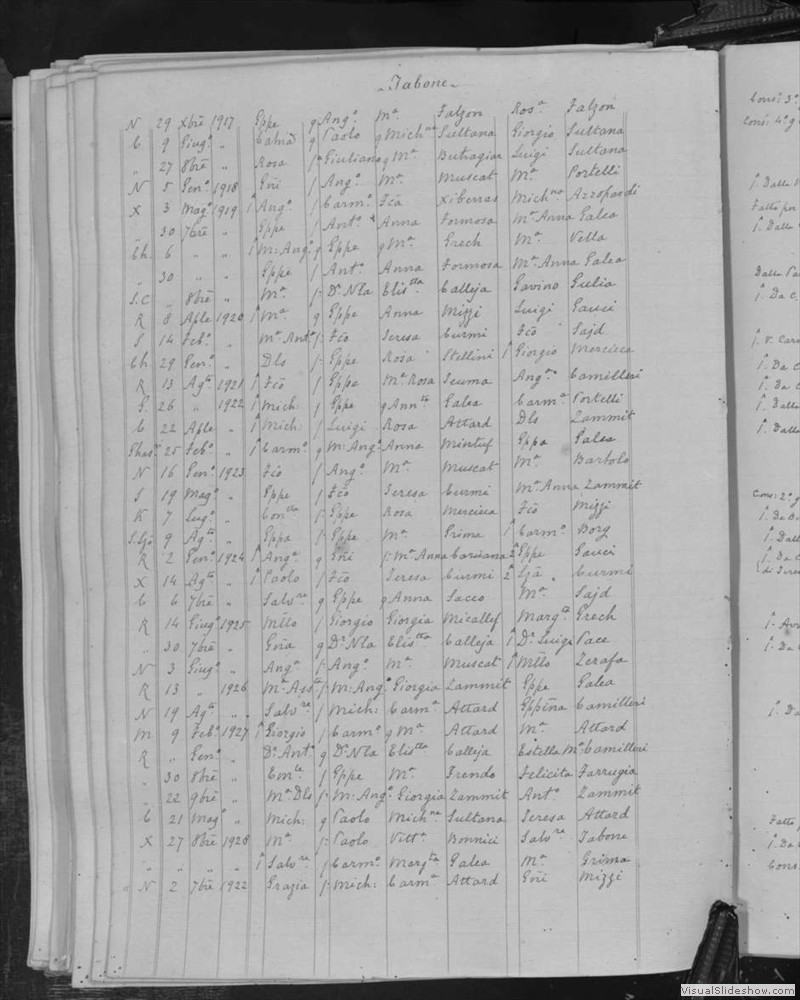 Tabone
N 29 Xbre 1917 Gppe g Ang.o M.a Falzon Ros.a Falzon
C 9 Giug.o „ g Paolo g Mich.na Sultana Giorgio Sultana
„ 27 8bre „ Rosa f Giuliano g M.a Buttagiar Luigi Sultana
N 5 Gen.o 1918 Gni f Ang.o M.a Muscat M.a Portelli
X 3 Mag.o 1919 f Ang.o f Carm.o Fca Xiberras Mich.na Azzopardi
30 7bre „ Gppe f Ant.o Anna Formosa M.a Anna Galea
Ch. 6 „ „ f M: Ang.o g Gppe g M.a Grech M.a Vella
„ 30 „ „ Gppe f Ant.o Anna Formosa M.a Anna Galea
S.C „ 8bre „ M.a f D.r Nla Elis.tta Calleja Gavino Gulia
R 8 Aple 1920 f M.a g Gppe Anna Mizzi Luigi Gauci
S 14 Feb.o „ M.a Ant.a f: Fco Teresa Curmi Fco Sajd
Ch 29 Gen.o „ Dls f: Gppe Rosa Stellini f Giorgio Mercieca
R 13 Ag.to 1921 f Fco f Gppe M.a Rosa Scuma Ang.o Camilleri
G. 26 „ 1922 f Mich: f Gppe g Ann.tta Galea Carm.a Portelli
C 22 Aple „ f Mich: f Luigi Rosa Attard Dls Zammit
Ghas.r 25 Feb.o „ f Carm.o g M: Ang.o Anna Mintuf Gppa Galea
N 16 Gen.o 1923 Fco f Ang.o M.a Muscat M.a Bartolo
S 19 Mag.o „ Gppe f Fco Teresa Curmi M.a Anna Zammit
K 7 Lug.o „ Con.tta f: Gppe Rosa Mercieca Fco Mizzi
S.Gjo 9 Ag.to „ Gppa f: Gppe M.a Grima f Carm.o Borg
R 2 Gen.o 1924 f Ang.a g Gni f: M.a Anna Caruana 2 Gppe Gauci
X 14 Ag.to „ f Paolo f Fco Teresa Curmi 2 Gja „ Curmi
C 6 7bre „ Salv.re g Gppe g Anna Sacco M.a Sajd
R 14 Giug.o 1925 Mllo f Giorgio Giorgia Micallef Marg.ta Grech
„ 30 7bre „ Gnia g D.r Nla Elis.tta Calleja f D.r Luigi Pace
N 3 Giug.o „ Ang.a f: Ang.o M.a Muscat f Mllo Zerafa
R 13 „ 1926 M.a Ass.ta f M: Ang.o Giorgia Zammit Gppe Galea
N 19 Ag.to „ Salv.re f Mich: Carm.a Attard Gppina Camilleri
M 9 Feb.o 1927 f Giorgio f Carm.o g M.a Attard M.a Attard
R „ Gen.o „ D.r Ant.o g D.r Nla Elis.tta Calleja Estella M.a Camilleri
„ 30 8bre „ Em.le f Gppe M.a Trendo Felicita Farrugia
„ 22 9bre „ M.a Dls f: M: Ang.o Giorgia Zammit Ant.o Zammit
C 21 Mag.o „ Mich: g Paolo Mich.na Sultana Teresa Attard
X 27 8bre 1928 M.a f: Paolo Vitt.a Bonnici Salv.re Tabone
„ „ „ „ f Salv.re f Carm.o Marg.ta Galea M.a Grima
N 2 7bre 1922 Grazia f: Mich: Carm.a Attard Gni Mizzi
Cons: 3.o
Cons: 4.o g
f. Dalla
Fatto per
f. Dalla
Dalla
f. Da C.
f. V. Car
f. Da C
f. Da C
f. Dalla
f. Dalla
Cons: 2.o g
f. Da
f. Dall
f. Da C
di
f. Da C
f. Da
Fatto
f. Da C
Cons:
VisualSlideshow.com